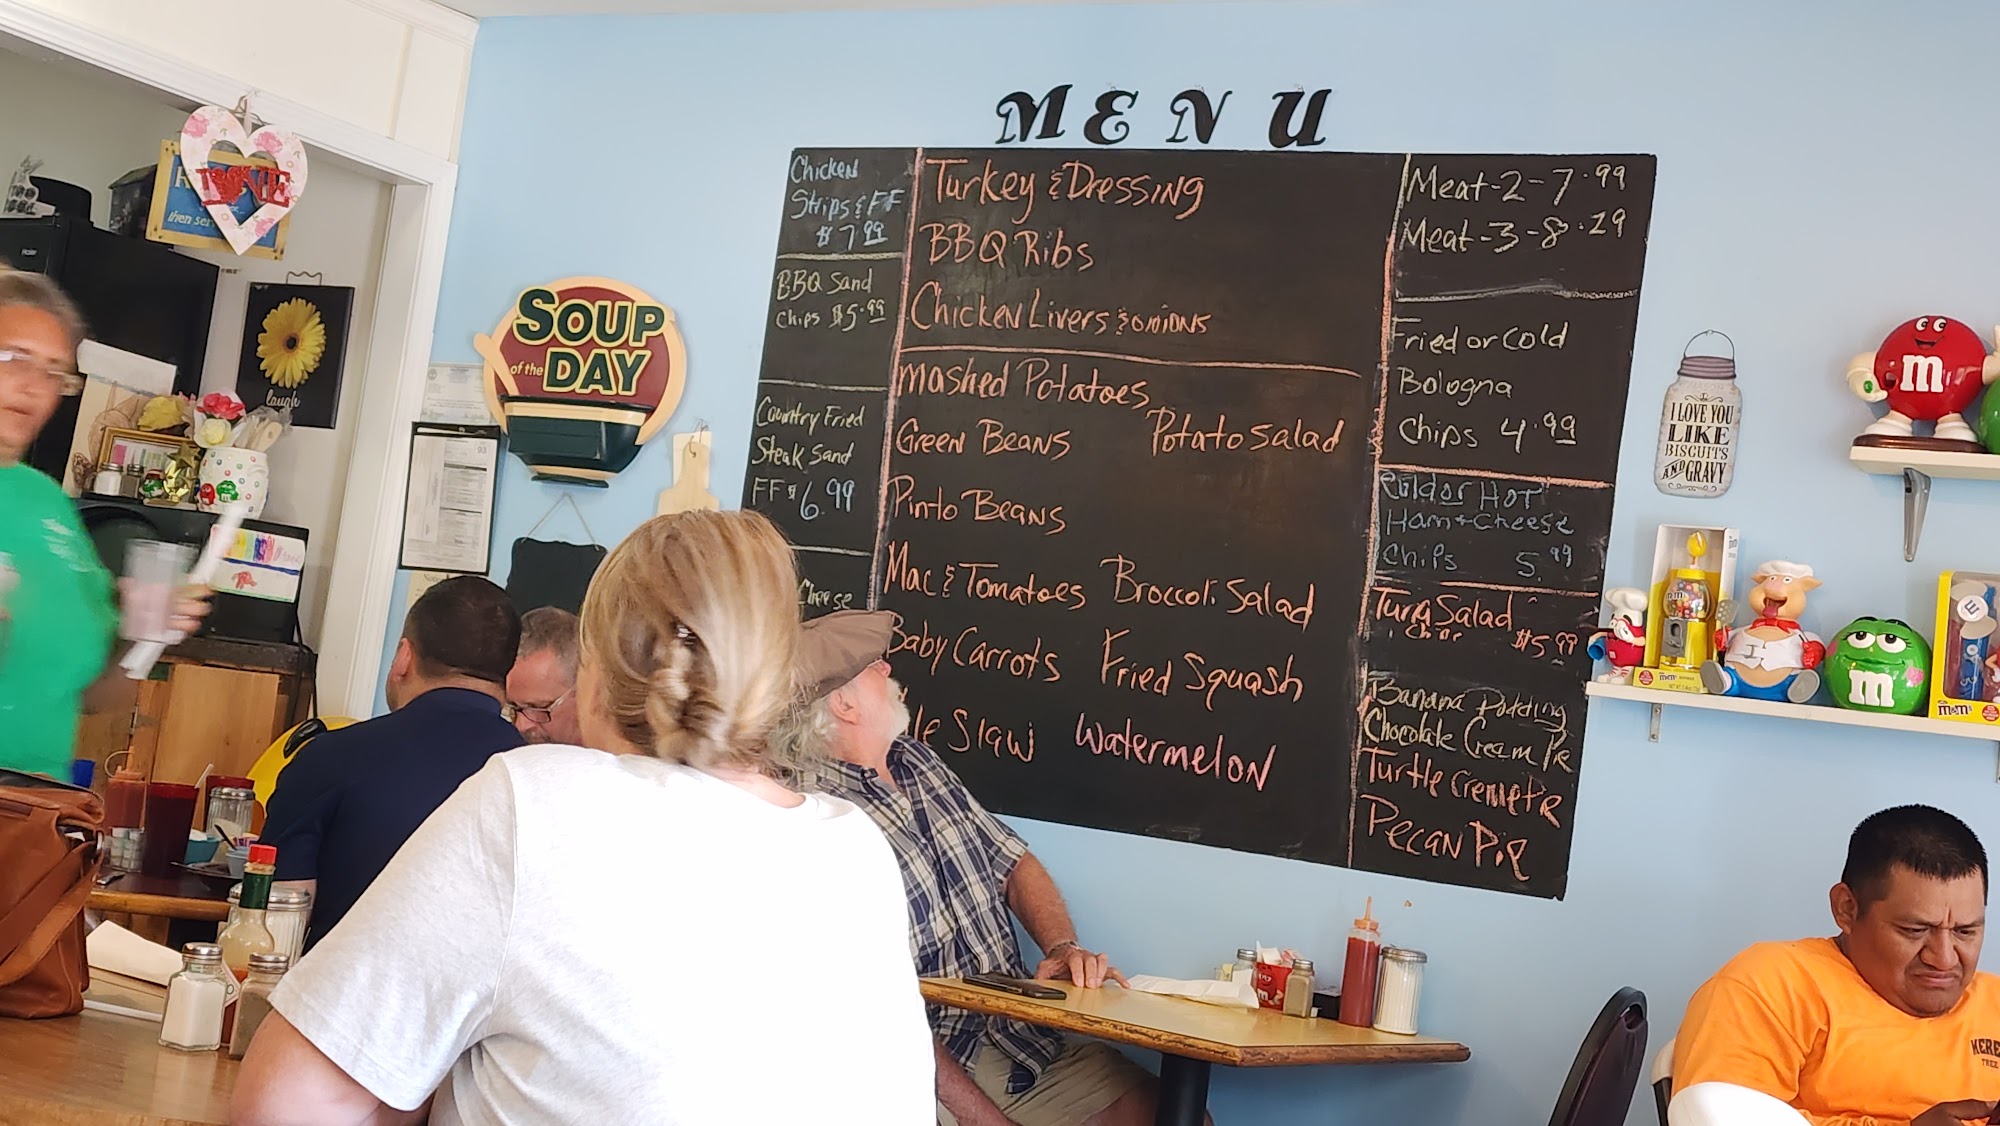 MENU
Chicken
Strips & FF
$7.99
BBQ Sand
Chips $5.99
Country Fried
Steak Sand
FF $6.99
Cheese
Turkey & Dressing
BBQ Ribs
Chicken Livers & onions
Mashed Potatoes
Green Beans
Potato Salad
Pinto Beans
Mac & Tomatoes
Broccoli Salad
Baby Carrots
Fried Squash
le Slaw
Watermelon
Meat-2-7.99
Meat-3-8.29
Fried or Cold
Bologna
Chips 4.99
Cold or Hot
Ham + Cheese
Chips 5.99
Tuna Salad
$5.99
Banana Pudding
Chocolate Cream Pie
Turtle Creme Pie
Pecan Pie
SOUP
of the DAY
LOVE
then ser
laugh
I LOVE YOU
LIKE
BISCUITS
AND GRAVY
m
m
m&m's
m&m's
KERE
TREE